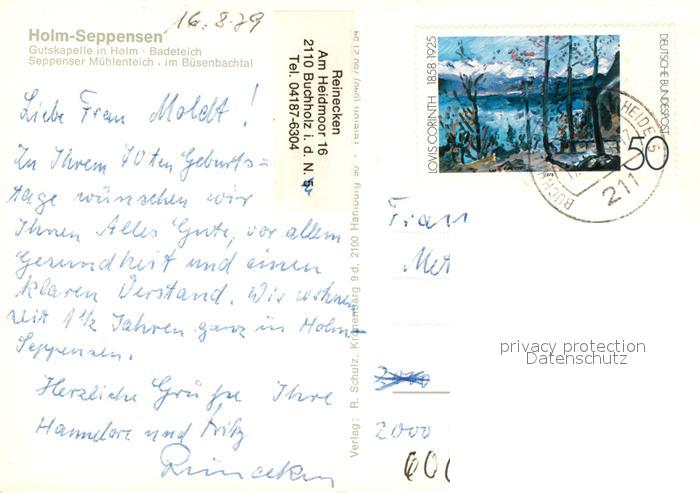 16.8.79
Holm-Seppensen
Gutskapelle in Holm · Badeteich
Seppenser Mühlenteich · im Büsenbachtal
Liebe Frau Moldt!
Zu Ihrem 70ten Geburts=
tage wünschen wir
Ihnen Alles Gute, vor allem
Gesundheit und einen
klaren Verstand. Wir wohnen
seit 1½ Jahren ganz in Holm-
Seppensen.
Herzliche Grüße Ihre
Hannelore und Fritz
Reinecken
Reinecken
Am Heidmoor 16
2110 Buchholz i. d. N.
Tel. 04187-6304
Verlag: R. Schulz, Krönensarg 9d, 2100 Hamburg
LOVIS CORINTH 1858-1925
DEUTSCHE BUNDESPOST
50
211
Frau
Met
2000
2000
privacy protection
Datenschutz